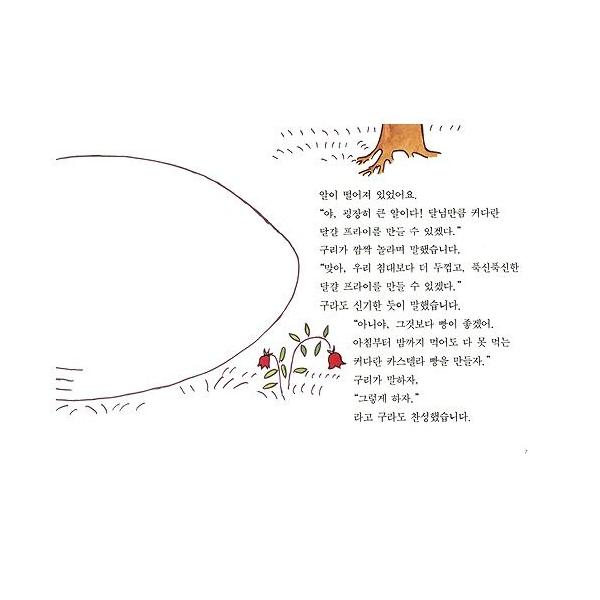 알이 떨어져 있었어요.
"야, 굉장히 큰 알이다! 달님만큼 커다란
달걀 프라이를 만들 수 있겠다."
구리가 깜짝 놀라며 말했습니다.
"맞아, 우리 침대보다 더 두껍고, 푹신푹신한
달걀 프라이를 만들 수 있겠다."
구라도 신기한 듯이 말했습니다.
"아니야, 그것보다 빵이 좋겠어.
아침부터 밤까지 먹어도 다 못 먹는
커다란 카스텔라 빵을 만들자."
구리가 말하자,
"그렇게 하자."
라고 구라도 찬성했습니다.
7